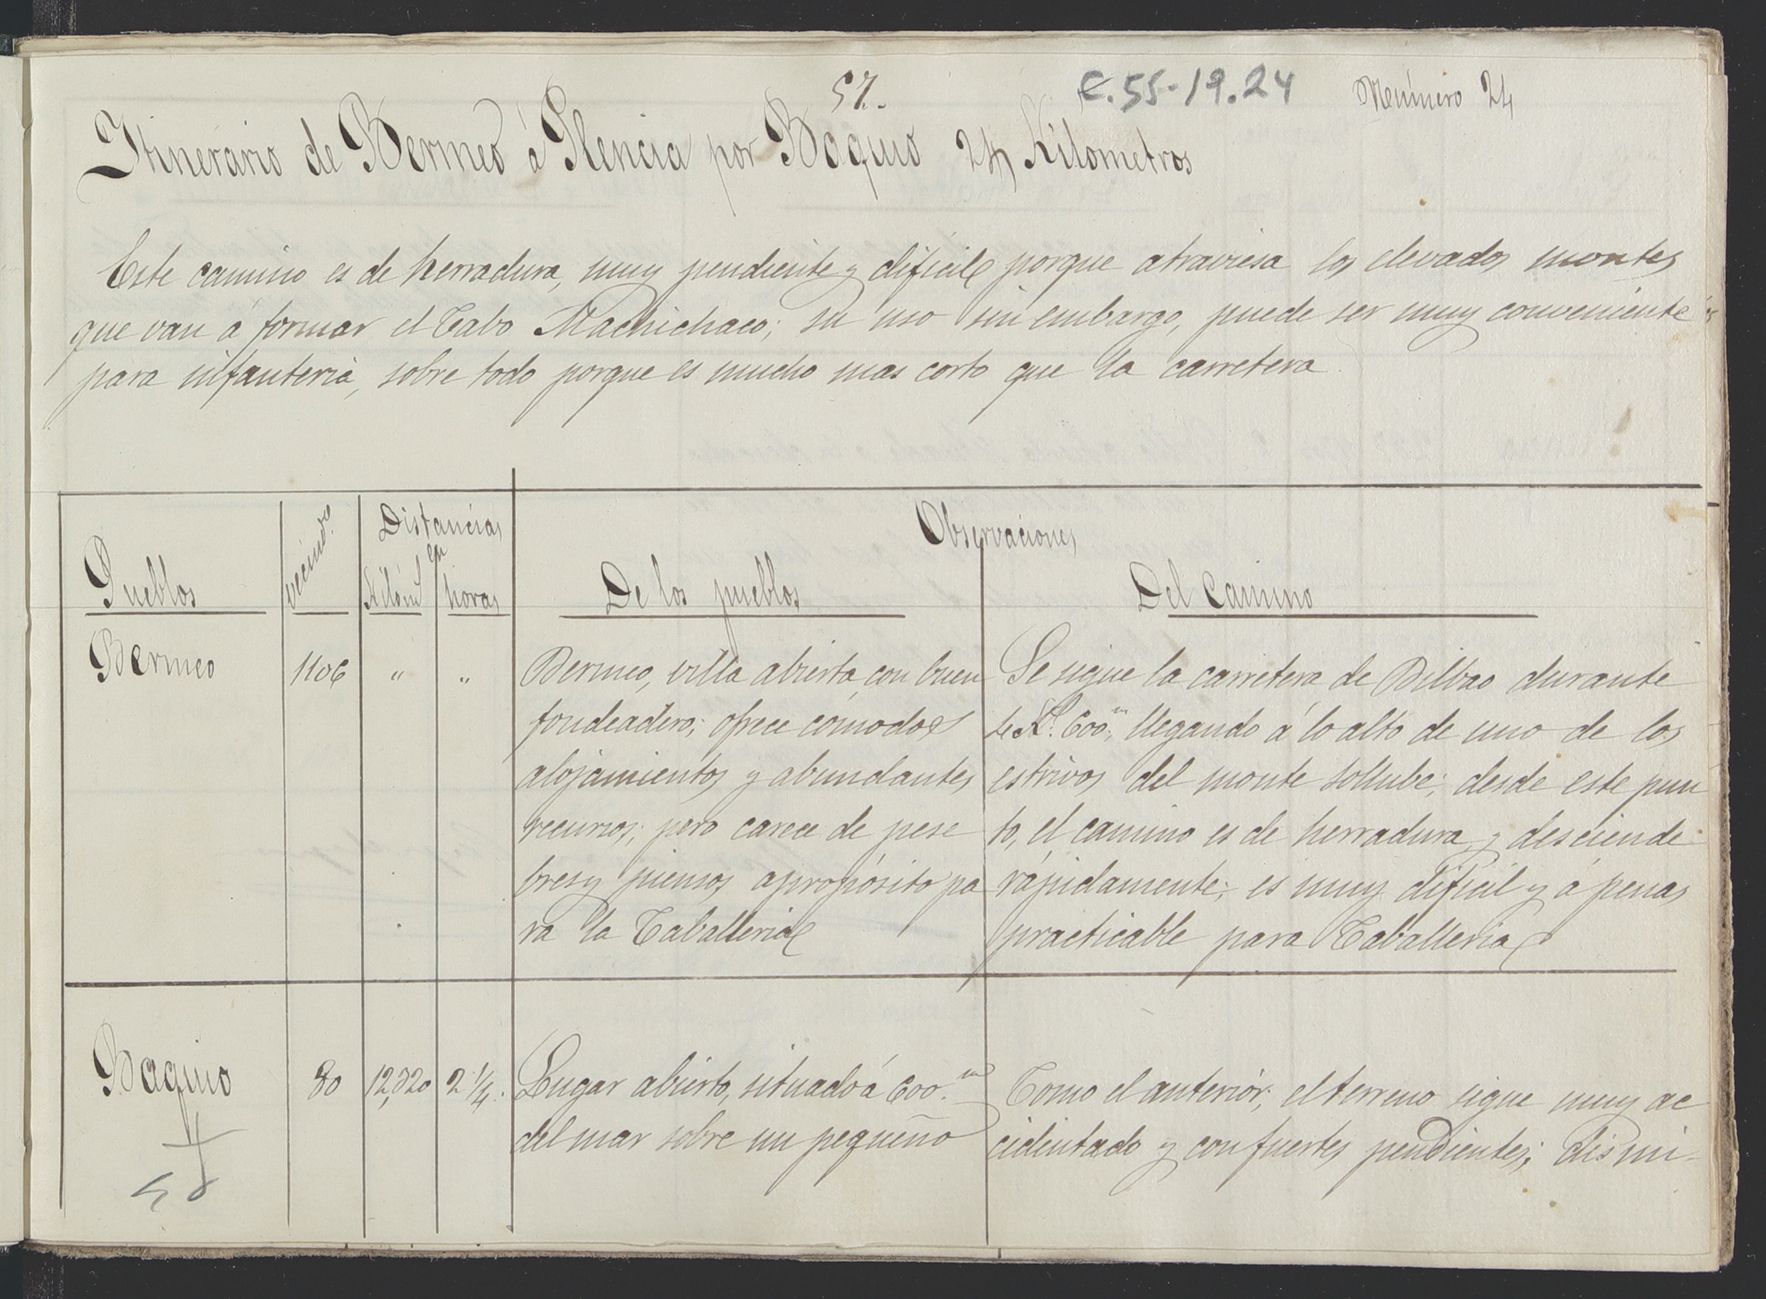 57.
C.55-19.24
Número 24
Itinerario de Bermeo á Plencia por Baquio 24 Kilometros
Este camino es de herradura, muy pendiente y dificil porque atraviesa los elevados montes
que van á formar el Cabo Machichaco; su uso sin embargo, puede ser muy conveniente
para infanteria, sobre todo porque es mucho mas corto que la carretera.
Pueblos
vecind.º
Distancias
en
Kilóm
horas
Observaciones
De los pueblos
Del Camino
Bermeo
1106
"
"
Bermeo, villa abierta, con buen
fondeadero; ofrece cómodos
alojamientos y abundantes
recursos; pero carece de pese
bres y piensos apropósito pa
ra la Caballeria
Se sigue la carretera de Bilbao durante
4 K. 600m, llegando á lo alto de uno de los
estrivos del monte Sollube; desde este pun
to, el camino es de herradura y desciende
rápidamente; es muy dificil y á penas
practicable para Caballeria
Baquio
80
12,320
2 1/4.
Lugar abierto, situado á 600.m
del mar sobre un pequeño
Como el anteriór; el terreno sigue muy ac
cidentado y con fuertes pendientes; dismi-